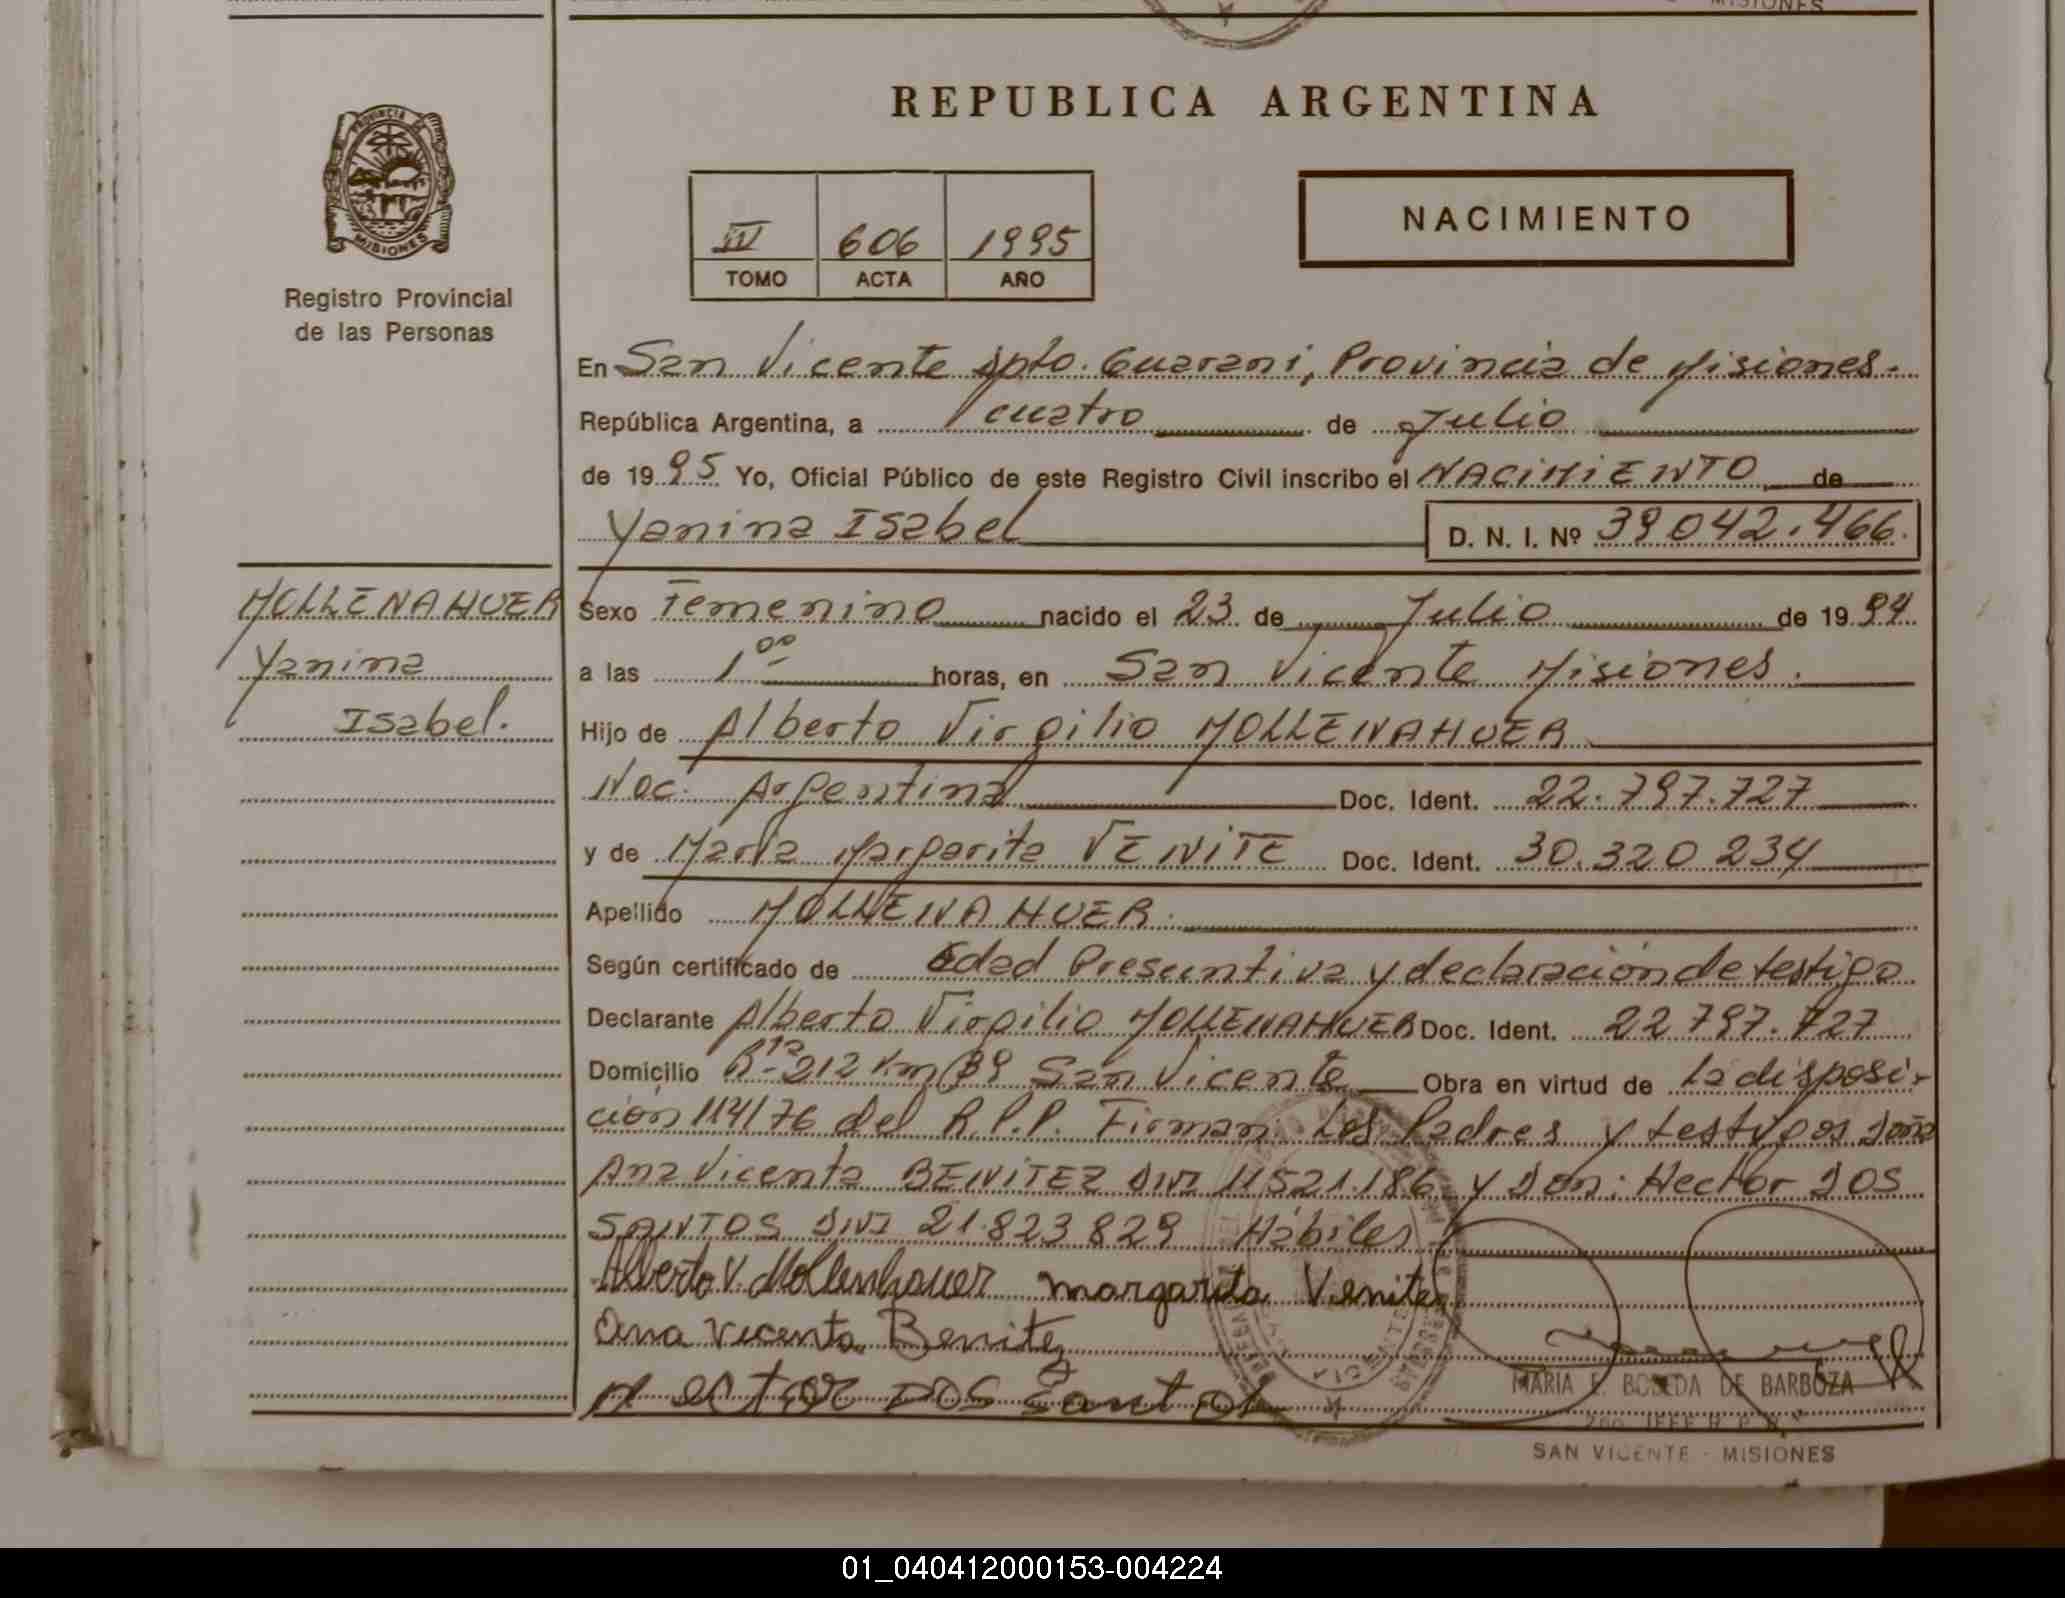 MISIONES
REPUBLICA ARGENTINA
PROVINCIA DE
MISIONES
Registro Provincial
de las Personas
IV 606 1995
TOMO ACTA AÑO
NACIMIENTO
En San Vicente Dpto. Guarani, Provincia de Misiones.
República Argentina, a cuatro de Julio
de 1995 Yo, Oficial Público de este Registro Civil inscribo el NACIMIENTO de
Yanina Isabel D. N. I. Nº 39042.466.
MOLLENAHUER
Yanina
Isabel.
Sexo Femenino nacido el 23 de Julio de 1994
a las 1 00 horas, en San Vicente Misiones.
Hijo de Alberto Virgilio MOLLENAHUER
Nac. Argentina Doc. Ident. 22.797.727
y de María Margarita VENITE Doc. Ident. 30.320 234
Apellido MOLLENAHUER.
Según certificado de Edad Presuntiva y declaración de testigo
Declarante Alberto Virgilio MOLLENAHUER Doc. Ident. 22 797.727
Domicilio 212 Km San Vicente Obra en virtud de la disposi-
ción 114/76 del R.P.P. Firman Los Padres y testigos doña
Ana Vicenta BENITEZ DNI 11521.186 y Don: Hector DOS
SANTOS DNI 21.823 829 Hábiles
Alberto V. Mollenhauer margarita Venite
Ana Vicenta Benitez
Hector Dos Santos
MARIA E. DE BARBOZA
SAN VICENTE - MISIONES
01_040412000153-004224